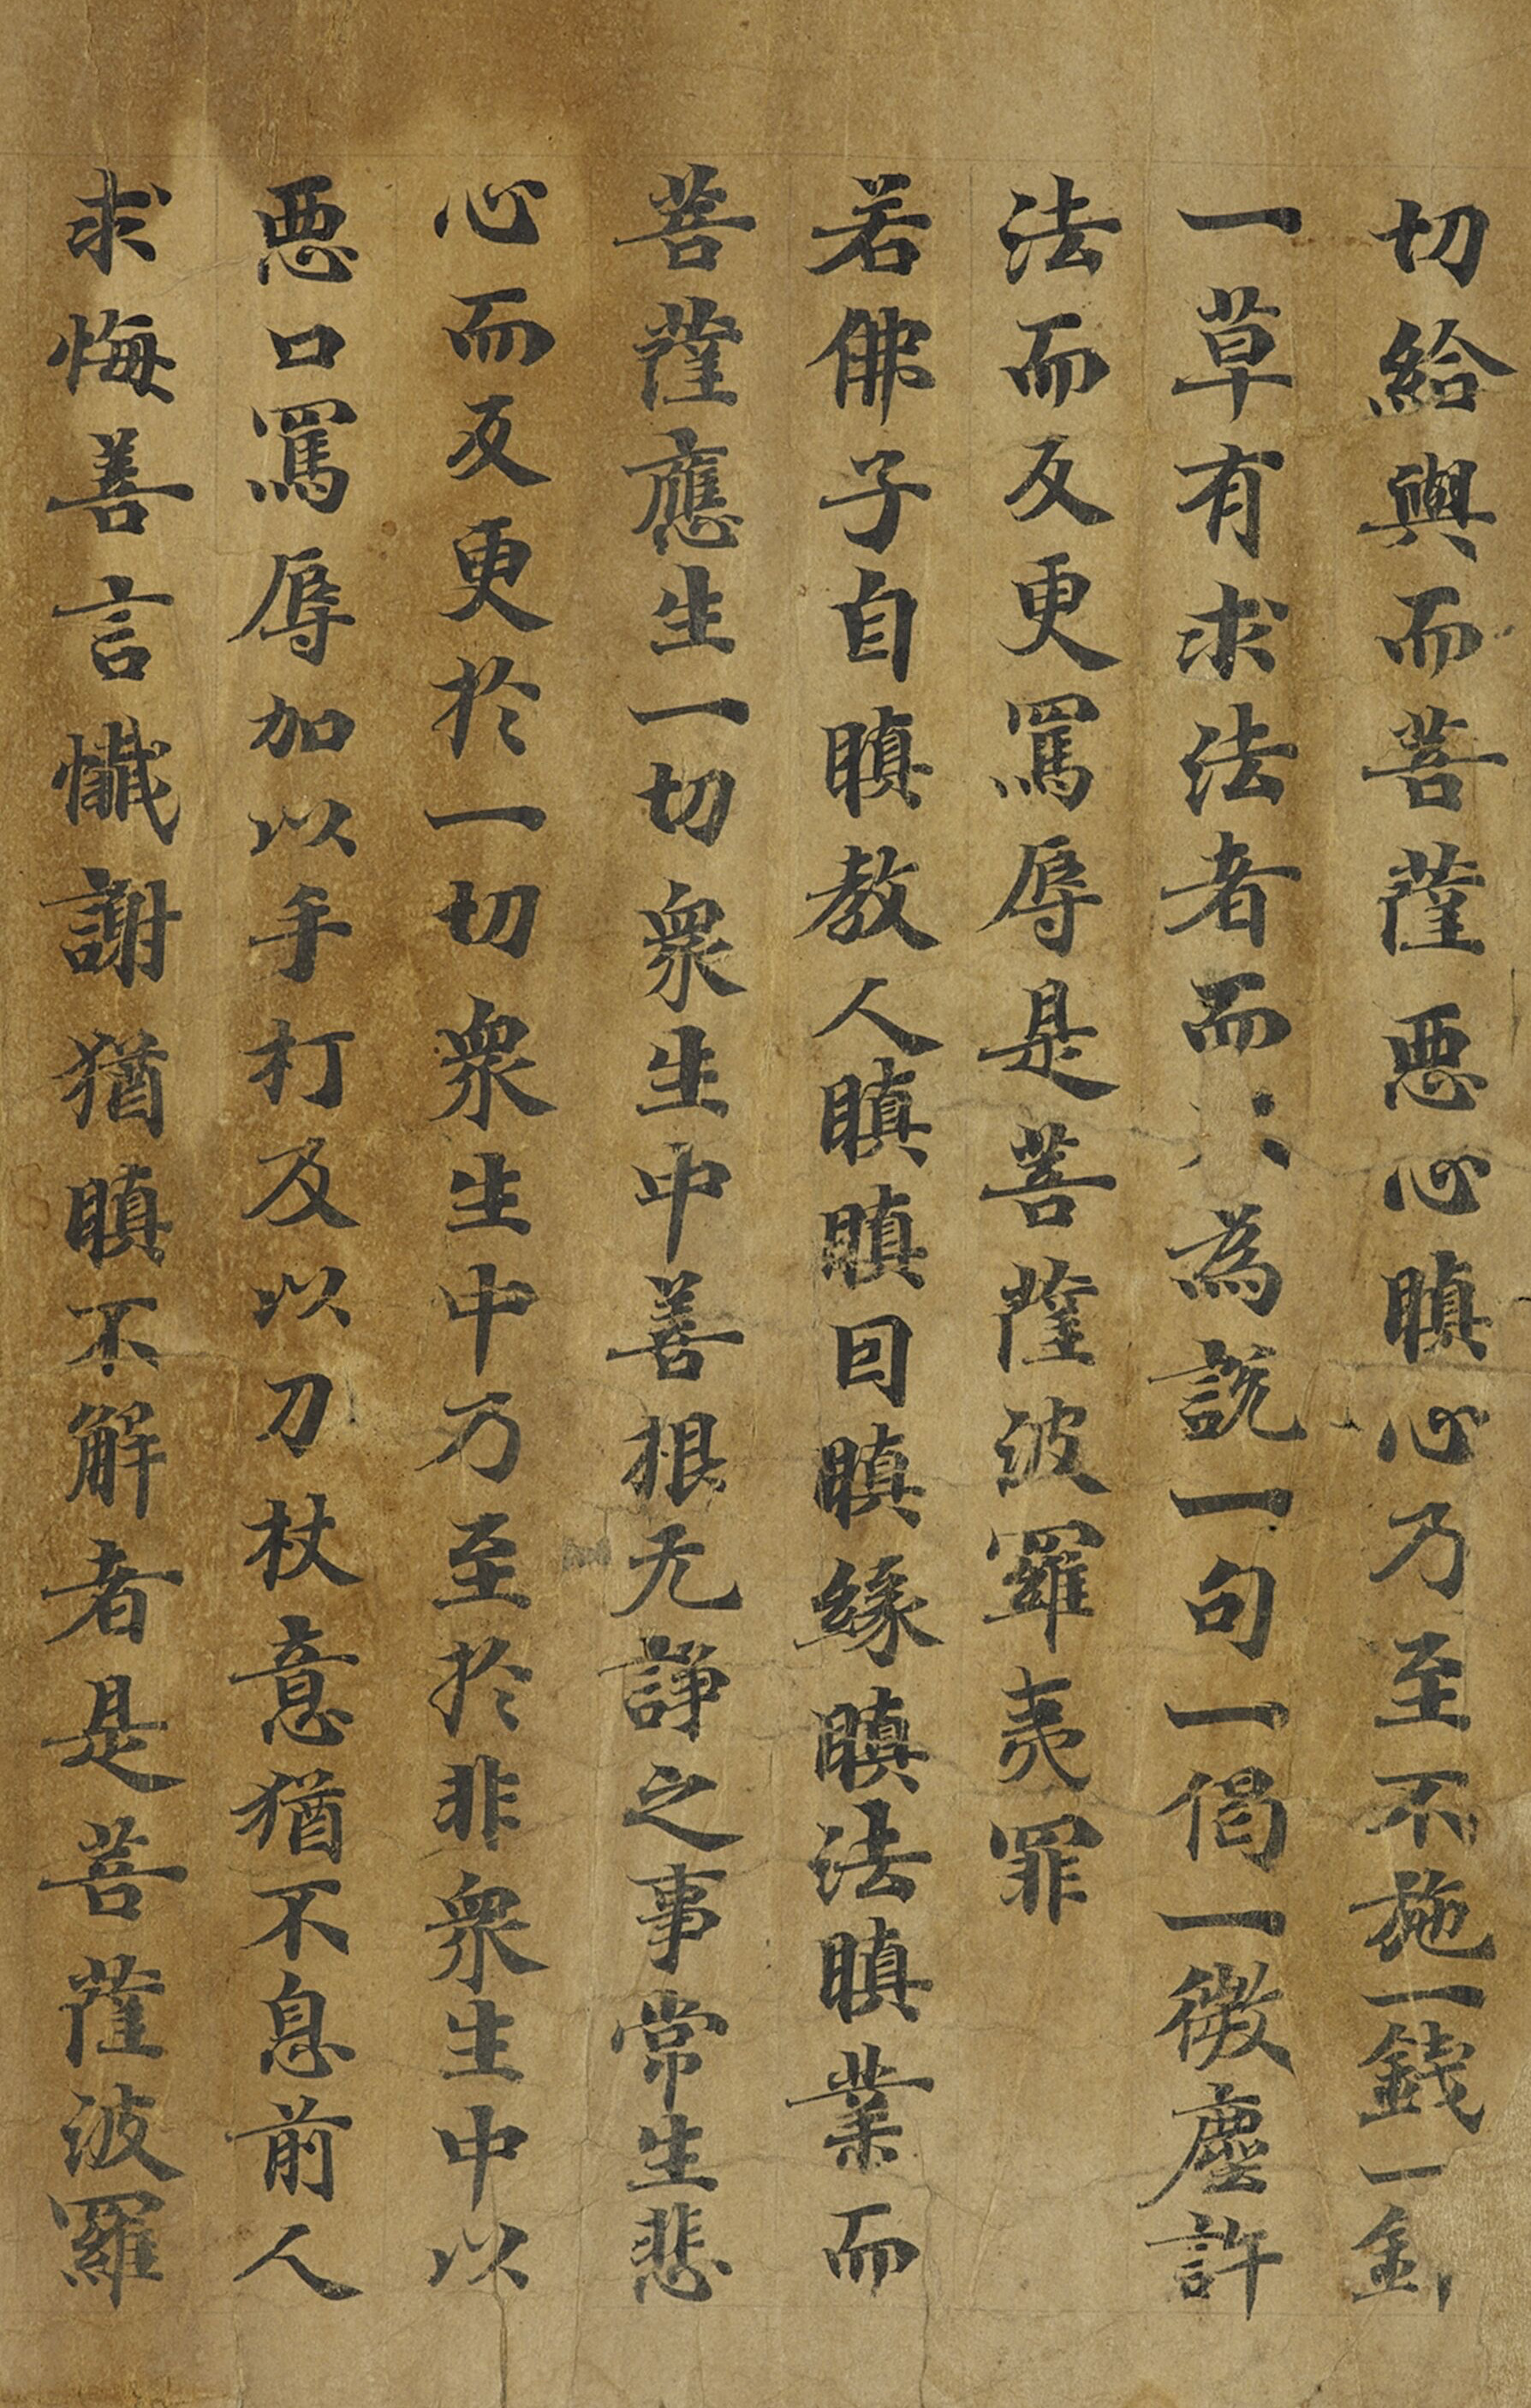 切給與而菩薩惡心瞋心乃至不施一錢一
一草有求法者而為說一句一偈一微塵許
法而反更罵辱是菩薩波羅夷罪
若佛子自瞋教人瞋瞋因瞋緣瞋法瞋業而
菩薩應生一切衆生中善根无諍之事常生悲
心而反更於一切衆生中乃至於非衆生中以
惡口罵辱加以手打及以刀杖意猶不息前人
求悔善言懺謝猶瞋不解者是菩薩波羅